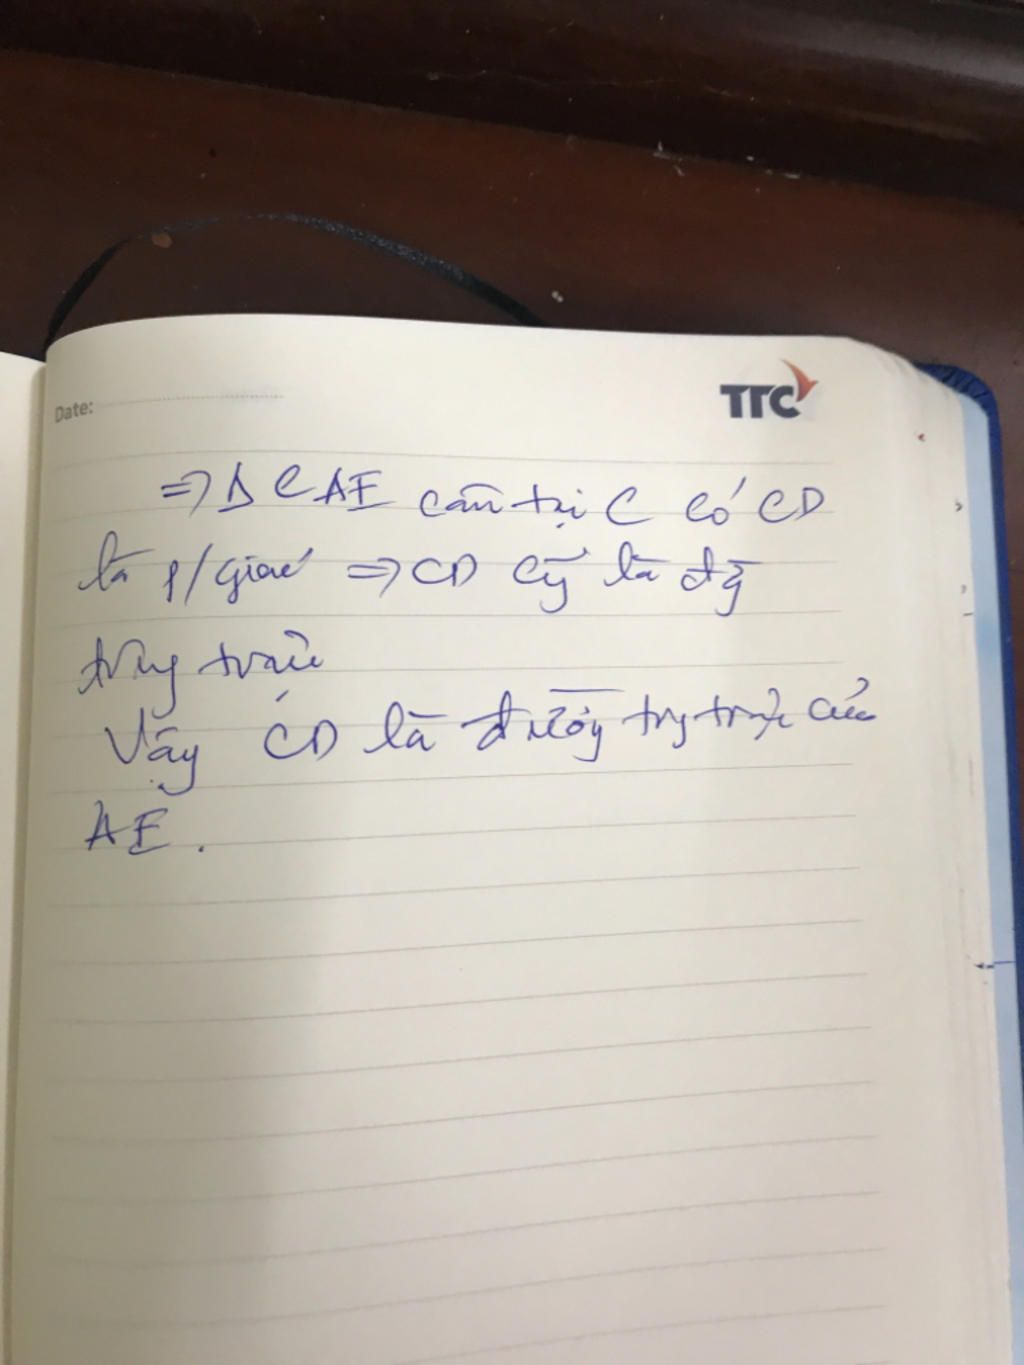 Date:
TTC
=> Δ CAE cân tại C có CD
là p/giác => CD cg̃ là đg
trung trực
Vậy CD là đường trg trực của
AE.